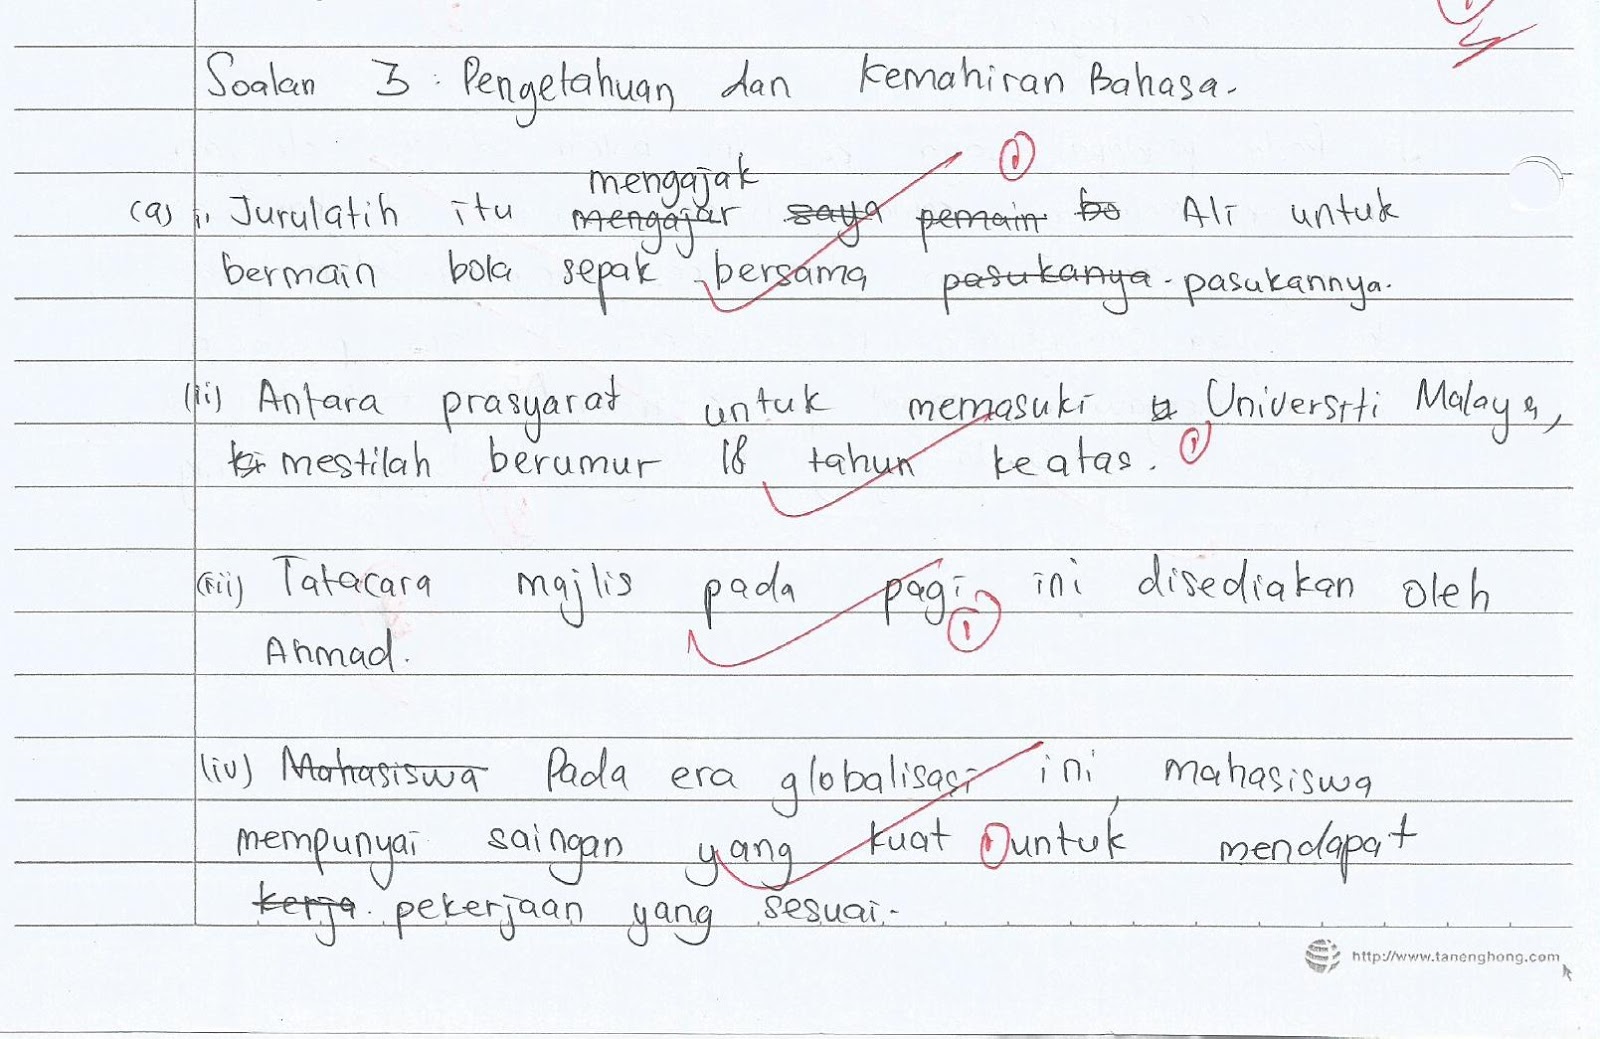 Soalan 3 : Pengetahuan dan Kemahiran Bahasa.
mengajak
(a) i. Jurulatih itu mengajar saya pemain bo Ali untuk
bermain bola sepak bersama pasukanya. pasukannya.
(ii) Antara prasyarat untuk memasuki Universiti Malaya,
mestilah berumur 18 tahun keatas.
(iii) Tatacara majlis pada pagi ini disediakan oleh
Ahmad.
(iv) Mahasiswa Pada era globalisasi ini, mahasiswa
mempunyai saingan yang kuat untuk mendapat
kerja. pekerjaan yang sesuai.
http://www.tanenghong.com